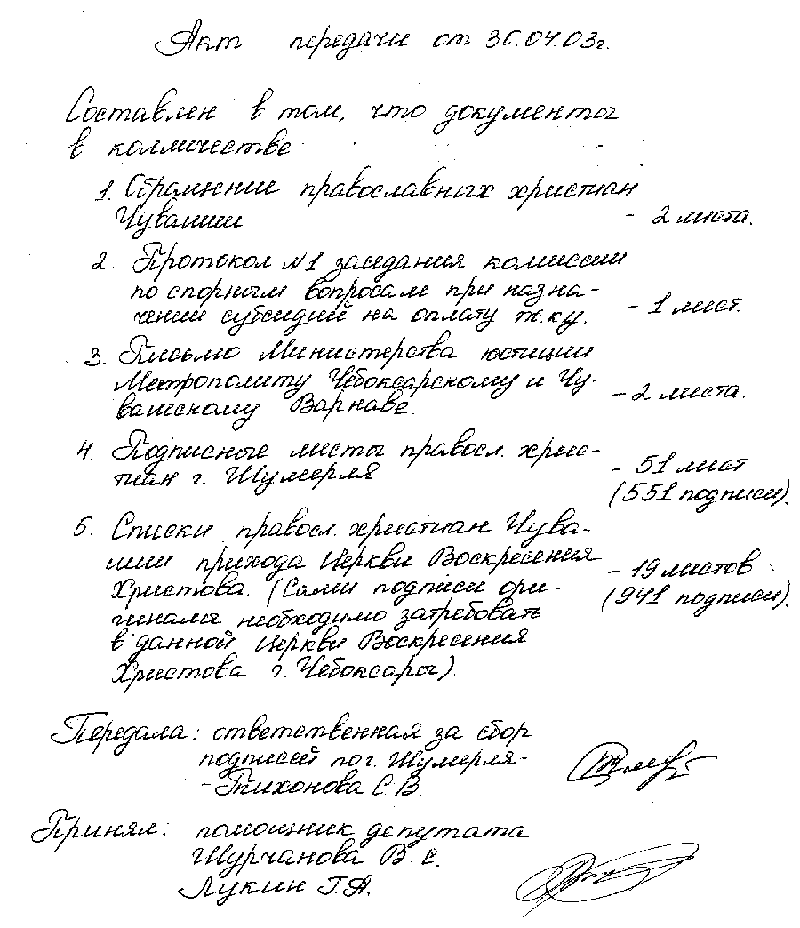 Акт передачи от 30.04.03г.
Составлен в том, что документы
в колличестве
1. Обращение православных христиан
Чувашии - 2 листа.
2. Протокол №1 заседания комиссии
по спорным вопросам при назна-
чении субсидий на оплату ж.ку. - 1 лист.
3. Письмо Министерства юстиции
Митрополиту Чебоксарскому и Чу-
вашскому Варнаве. - 2 листа.
4. Подписные листы правосл. христ-
иан г. Шумерля - 51 лист
(551 подписи).
5. Списки правосл. христиан Чува-
шии прихода Церкви Воскресения
Христова. (Сами подписи ори- - 19 листов
гиналы необходимо затребовать (941 подписи).
в данной Церкви Воскресения
Христова г. Чебоксары).
Передала: ответственная за сбор
подписей по г. Шумерля-
-Тихонова С.В.
Принял: помощник депутата
Шурчанова В.С.
Лукин Г.А.